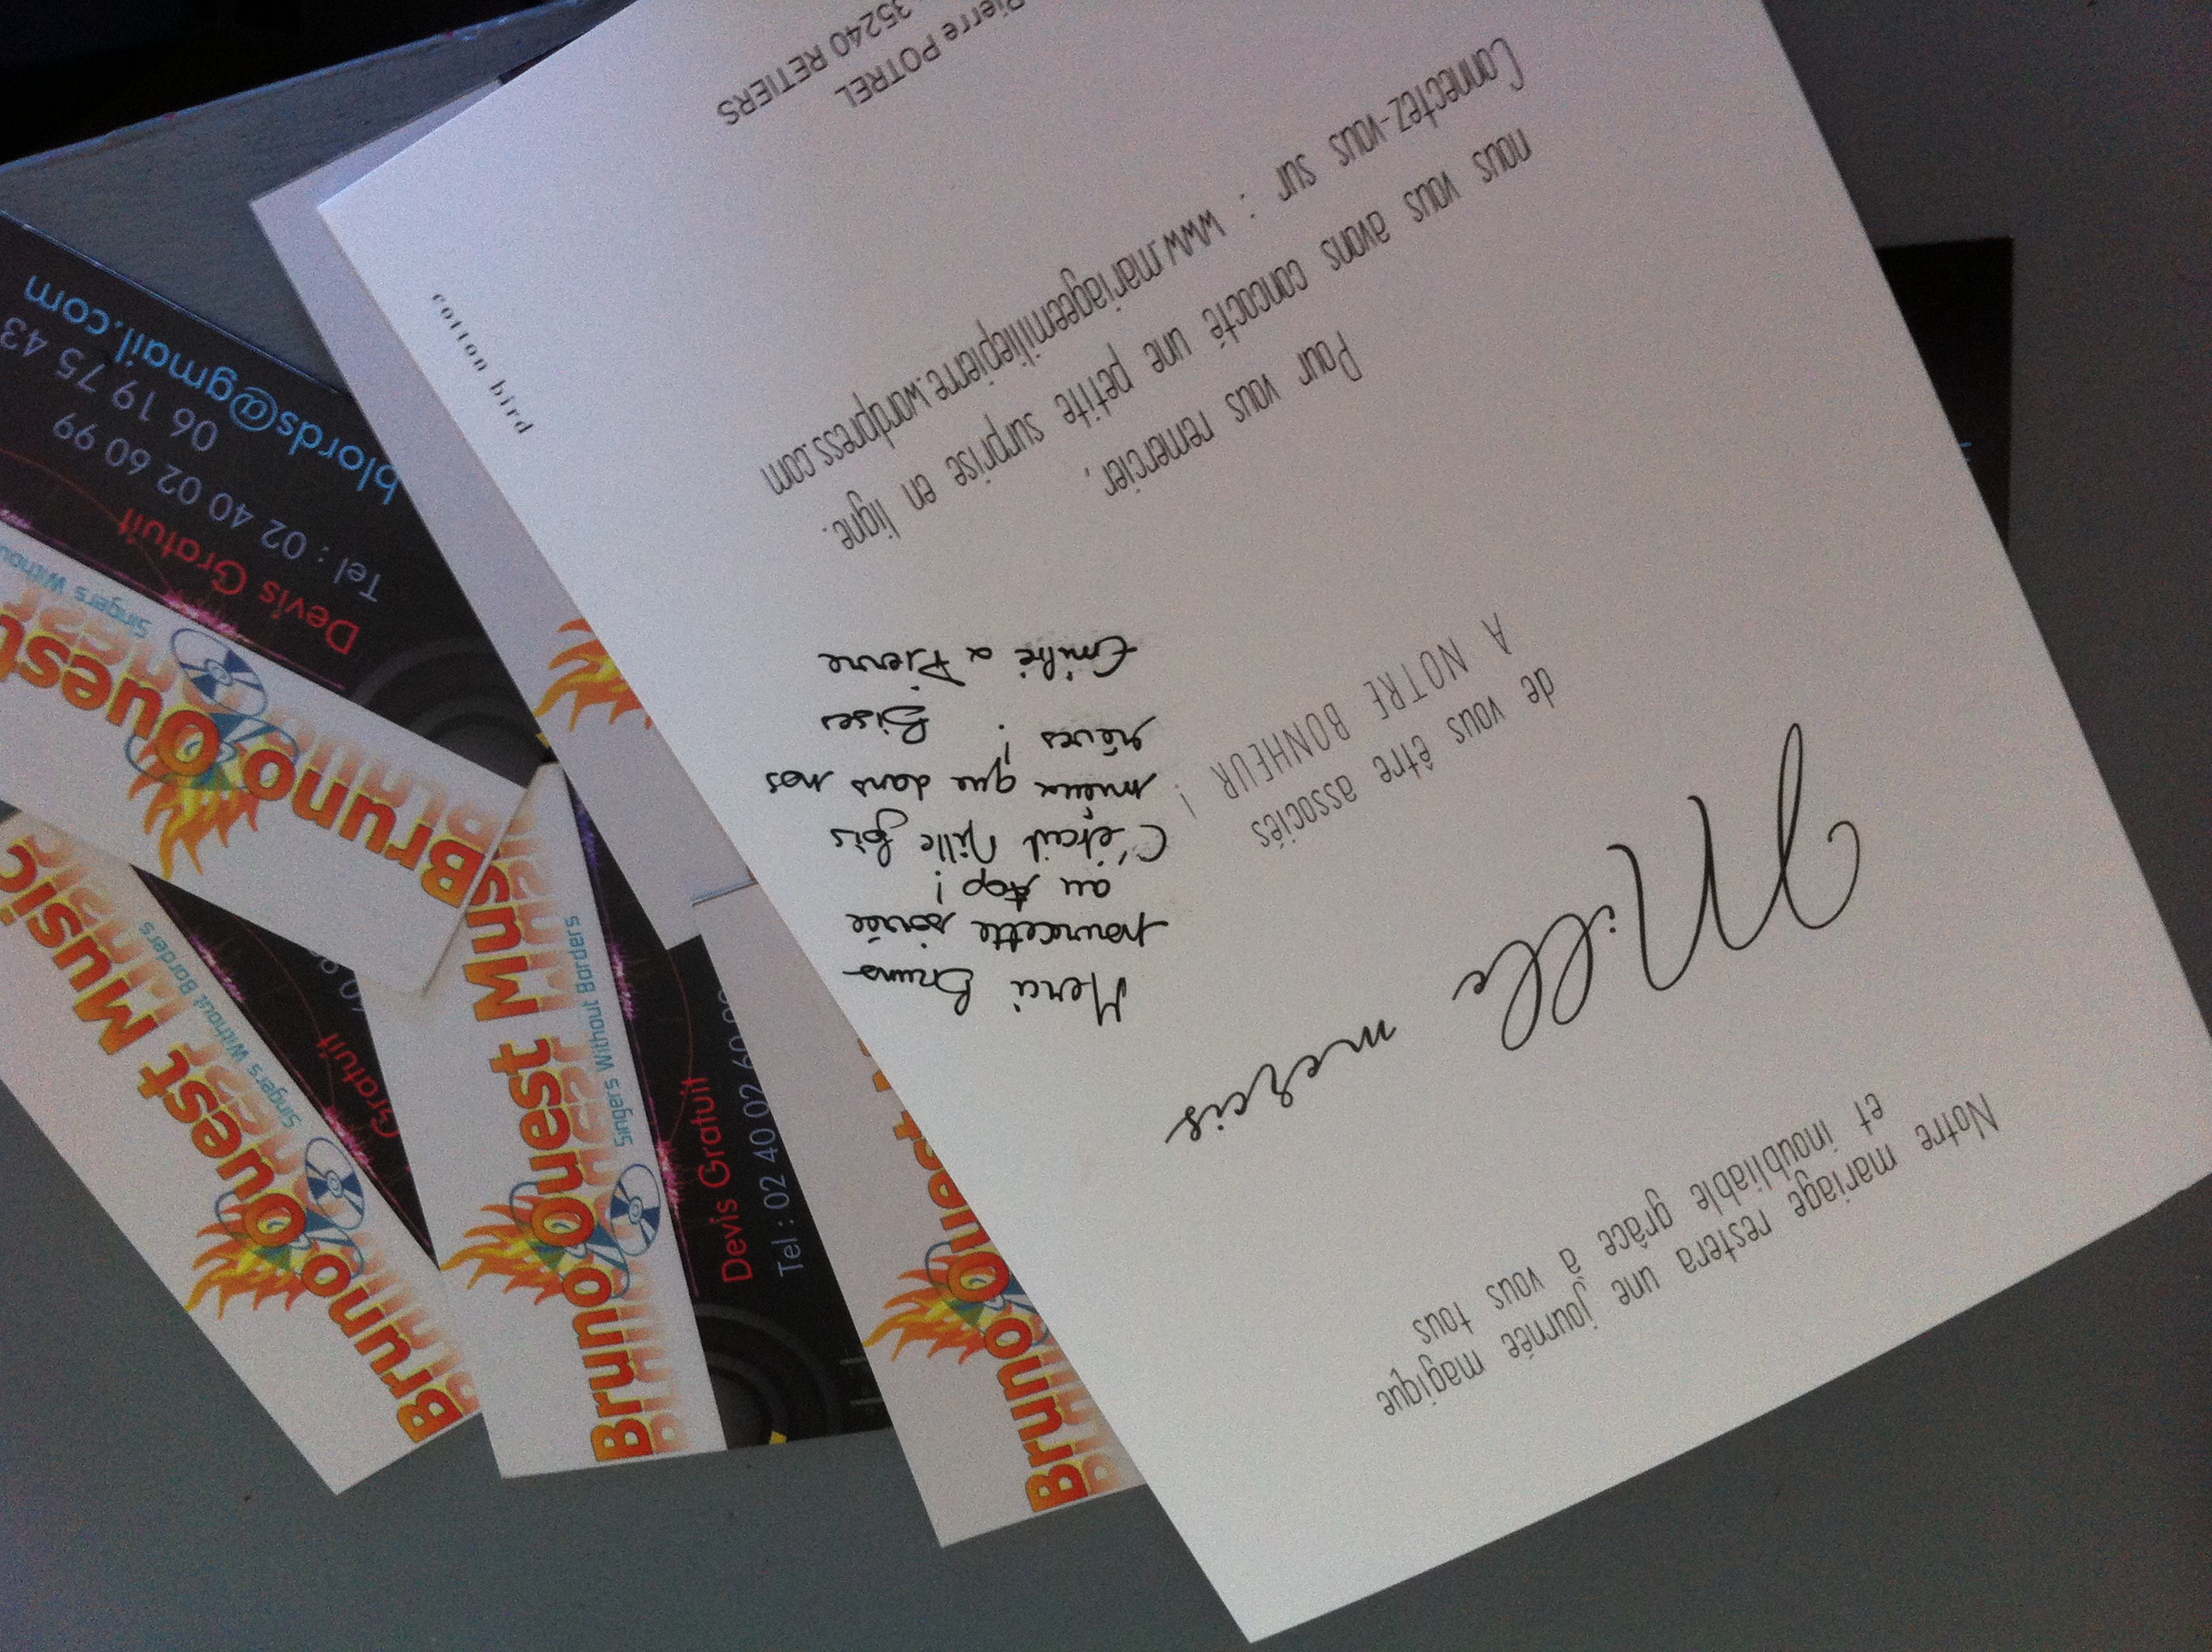 Notre mariage restera une journée magique
et inoubliable grâce à vous tous
Mille mercis
de vous être associés
A NOTRE BONHEUR !
Merci Bruno
pour cette soirée
au top !
C'était Mille fois
mieux que dans nos
rêves ! Bises
Emilie & Pierre
Pour vous remercier,
nous vous avons concocté une petite surprise en ligne.
Connectez-vous sur : www.mariageemiliepierre.wordpress.com
Pierre POTREL
35240 RETIERS
cotton bird
Bruno Ouest
Singers Withou
Devis Gratuit
Tel : 02 40 02 60 99
06 19 75 43
blords@gmail.com
Bruno Ouest Music
Singers Without Borders
Gratuit
Bruno Ouest Mus
Singers Without Borders
Devis Gratuit
Tel : 02 40 02 60 99
Bruno Ouest